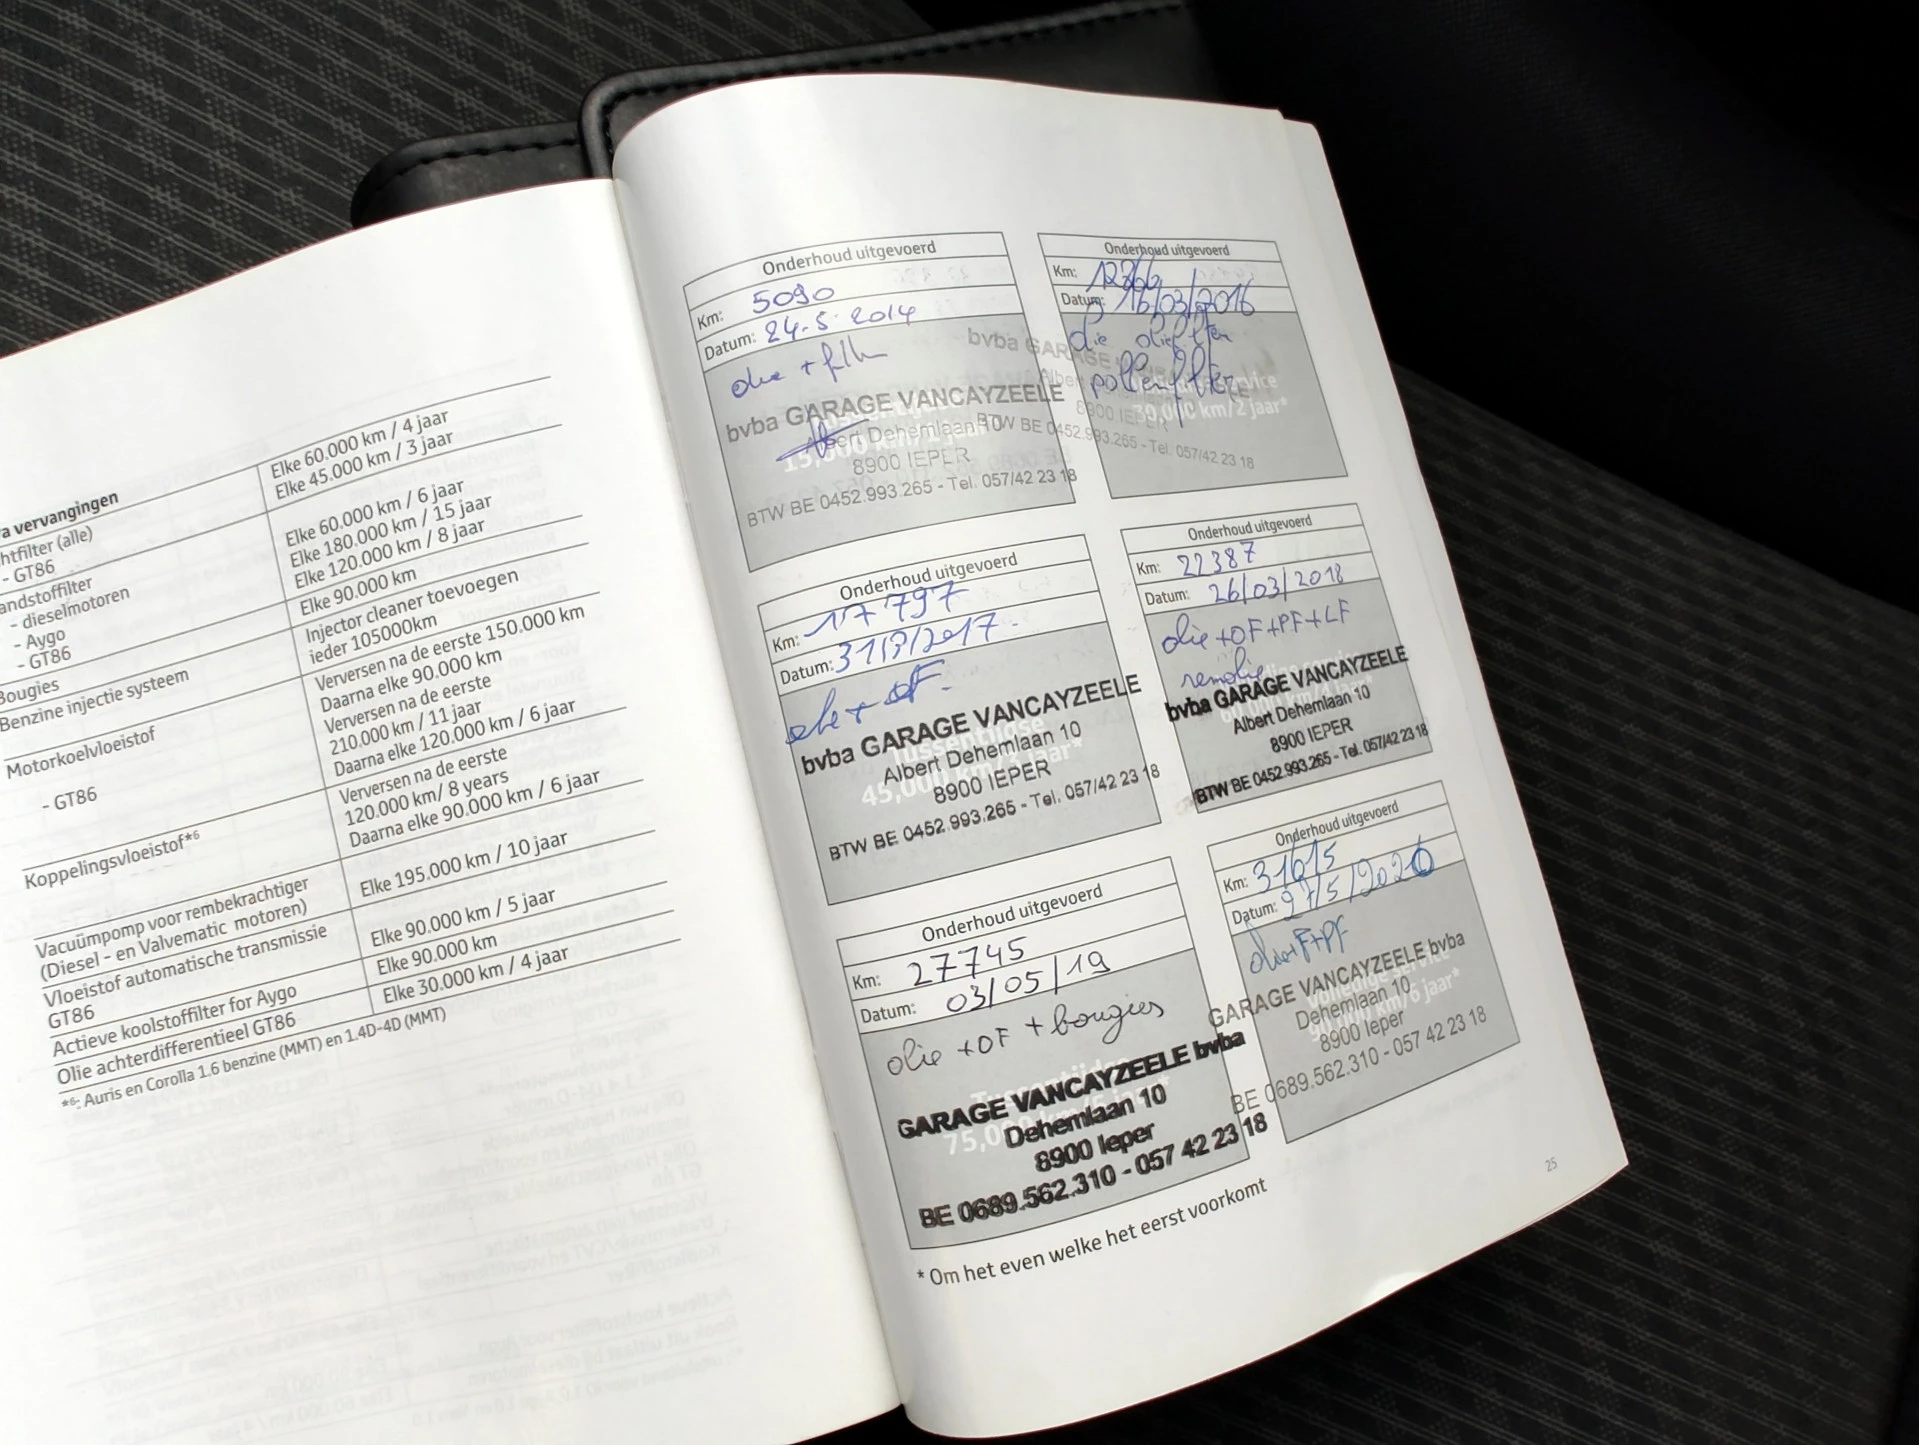 a vervangingen
htfilter (alle)
- GT86
andstoffilter
- dieselmotoren
- Aygo
- GT86
Bougies
Benzine injectie systeem
Motorkoelvloeistof
- GT86
Koppelingsvloeistof*6
Vacuümpomp voor rembekrachtiger
(Diesel - en Valvematic motoren)
Vloeistof automatische transmissie
GT86
Actieve koolstoffilter for Aygo
Olie achterdifferentieel GT86
*6: Auris en Corolla 1.6 benzine (MMT) en 1.4D-4D (MMT)
Elke 60.000 km / 4 jaar
Elke 45.000 km / 3 jaar
Elke 60.000 km / 6 jaar
Elke 180.000 km / 15 jaar
Elke 120.000 km / 8 jaar
Elke 90.000 km
Injector cleaner toevoegen
ieder 105000km
Verversen na de eerste 150.000 km
Daarna elke 90.000 km
Verversen na de eerste
210.000 km / 11 jaar
Daarna elke 120.000 km / 6 jaar
Verversen na de eerste
120.000 km/ 8 years
Daarna elke 90.000 km / 6 jaar
Elke 195.000 km / 10 jaar
Elke 90.000 km / 5 jaar
Elke 90.000 km
Elke 30.000 km / 4 jaar
Onderhoud uitgevoerd
Km: 5090
Datum: 24-5-2014
olie + 
bvba GARAGE VANCAYZEELE
Albert Dehemlaan 10
15,000 km/1 jaar*
8900 IEPER
BTW BE 0452.993.265 - Tel. 057/42 23 18
Onderhoud uitgevoerd
Km: 12366
Datum: 16/03/2016
olie oliefilter
pollenfilter
bvba GARAGE
Albert
service
8900 IEPER
30,000 km/2 jaar*
BTW BE 0452.993.265 - Tel. 057/42 23 18
Onderhoud uitgevoerd
Km: 17797
Datum: 31/3/2017
olie + OF
bvba GARAGE VANCAYZEELE
Tussentijdse
Albert Dehemlaan 10
45,000 km/3 jaar*
8900 IEPER
BTW BE 0452.993.265 - Tel. 057/42 23 18
Onderhoud uitgevoerd
Km: 22387
Datum: 26/03/2018
olie +OF+PF+LF
remolie
bvba GARAGE VANCAYZEELE
Albert Dehemlaan 10
8900 IEPER
BTW BE 0452.993.265 - Tel. 057/42 23 18
Onderhoud uitgevoerd
Km: 27745
Datum: 03/05/19
olie +OF + bougies
GARAGE VANCAYZEELE bvba
Tussentijdse
Dehemlaan 10
75,000 km/5 jaar*
8900 Ieper
BE 0689.562.310 - 057 42 23 18
Onderhoud uitgevoerd
Km: 31615
Datum: 27/5/2020
olie+F+PF
GARAGE VANCAYZEELE bvba
Volledige service
Dehemlaan 10
8900 Ieper
90,000 km/6 jaar*
BE 0689.562.310 - 057 42 23 18
* Om het even welke het eerst voorkomt
25